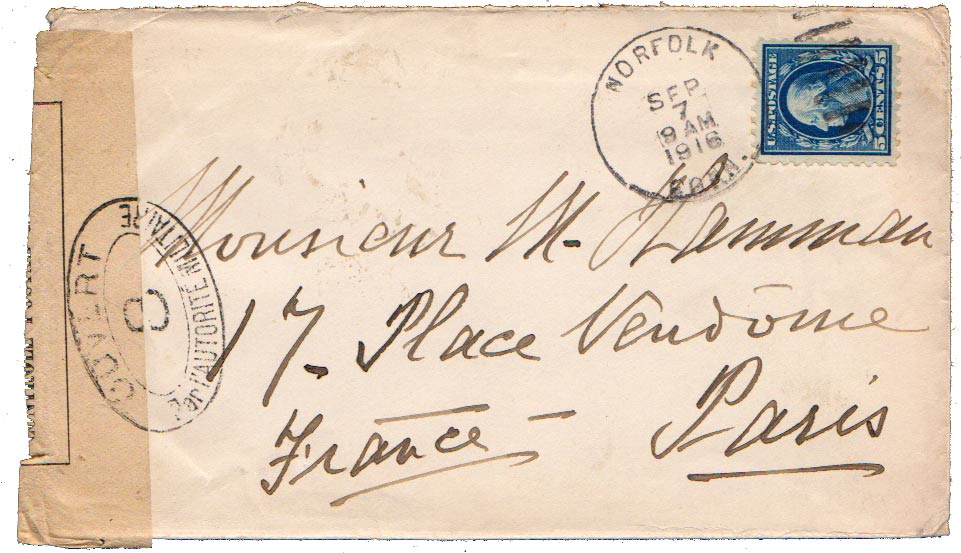 NORFOLK
SEP
7
9 AM
1916
CONN.
U.S. POSTAGE
5 CENTS 5
Monsieur M. Hamman
17. Place Vendôme
Paris
France
OUVERT
Par l'AUTORITÉ MILITAIRE
8